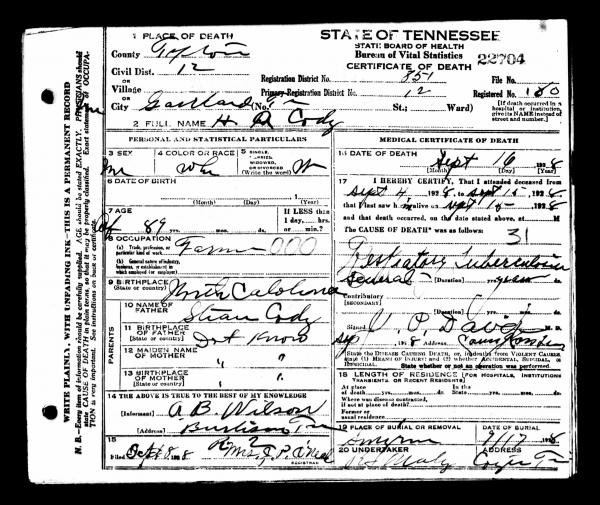 1 PLACE OF DEATH
County
Civil Dist. 12
OR
Village
OR
City Tn (No. St.; Ward)
2 FULL NAME H Cody
STATE OF TENNESSEE
STATE BOARD OF HEALTH
Bureau of Vital Statistics
CERTIFICATE OF DEATH
22704
Registration District No. 851
File No.
Primary Registration District No. 12
Registered No. 180
[If death occurred in
a hospital or institution,
give its NAME instead of
street and number.]
PERSONAL AND STATISTICAL PARTICULARS
3 SEX
m
4 COLOR OR RACE
Whi
5 SINGLE,
MARRIED,
WIDOWED,
OR DIVORCED
(Write the word)
6 DATE OF BIRTH
(Month) (Day) (Year)
7 AGE
89 yrs. mos. ds.
If LESS than
1 day, hrs.
or min.
8 OCCUPATION
(a) Trade, profession, or
particular kind of work
(b) General nature of industry,
business, or establishment in
which employed (or employer)
000
9 BIRTHPLACE
(State or country)
North
PARENTS
10 NAME OF
FATHER
Cody
11 BIRTHPLACE
OF FATHER
(State or country)
Dont Know
12 MAIDEN NAME
OF MOTHER
" "
13 BIRTHPLACE
OF MOTHER
" "
14 THE ABOVE IS TRUE TO THE BEST OF MY KNOWLEDGE
(Informant) A B. Wilson
(Address) Tn
15
Filed Sept 8
Mrs. P. O'Neal
REGISTRAR
MEDICAL CERTIFICATE OF DEATH
16 DATE OF DEATH
Sept 16 1928
(Month) (Day) (Year)
17 I HEREBY CERTIFY, That I attended deceased from
Sept 4 1928, to Sept 15 1928
that I last saw h alive on Sept 15 1928
and that death occurred, on the date stated above, at M.
The CAUSE OF DEATH* was as follows:
31
Tuberculosis
several (Duration) years mos. ds.
Contributory
(SECONDARY)
(Duration) yrs. mos. ds.
Signed P. Davis M. D.
(Address)
*State the DISEASE CAUSING DEATH, or, in deaths from VIOLENT CAUSES,
state (1) MEANS OF INJURY; and (2) whether ACCIDENTAL, SUICIDAL, or
HOMICIDAL.
State whether or not an operation was performed.
18 LENGTH OF RESIDENCE (FOR HOSPITALS, INSTITUTIONS
TRANSIENTS, OR RECENT RESIDENTS)
At place
of death yrs. mos. ds. State yrs. mos. ds.
Where was disease contracted,
if not at place of death?
Former or
usual residence
19 PLACE OF BURIAL OR REMOVAL
DATE OF BURIAL
Smyrna
9/17 1928
20 UNDERTAKER
ADDRESS
Tn
WRITE PLAINLY, WITH UNFADING INK—THIS IS A PERMANENT RECORD
N. B.—Every item of information should be carefully supplied. AGE should be stated EXACTLY. PHYSICIANS should
state CAUSE OF DEATH in plain terms, so that it may be properly classified. Exact statement of OCCUPA-
TION is very important. See instructions on back of certificate.